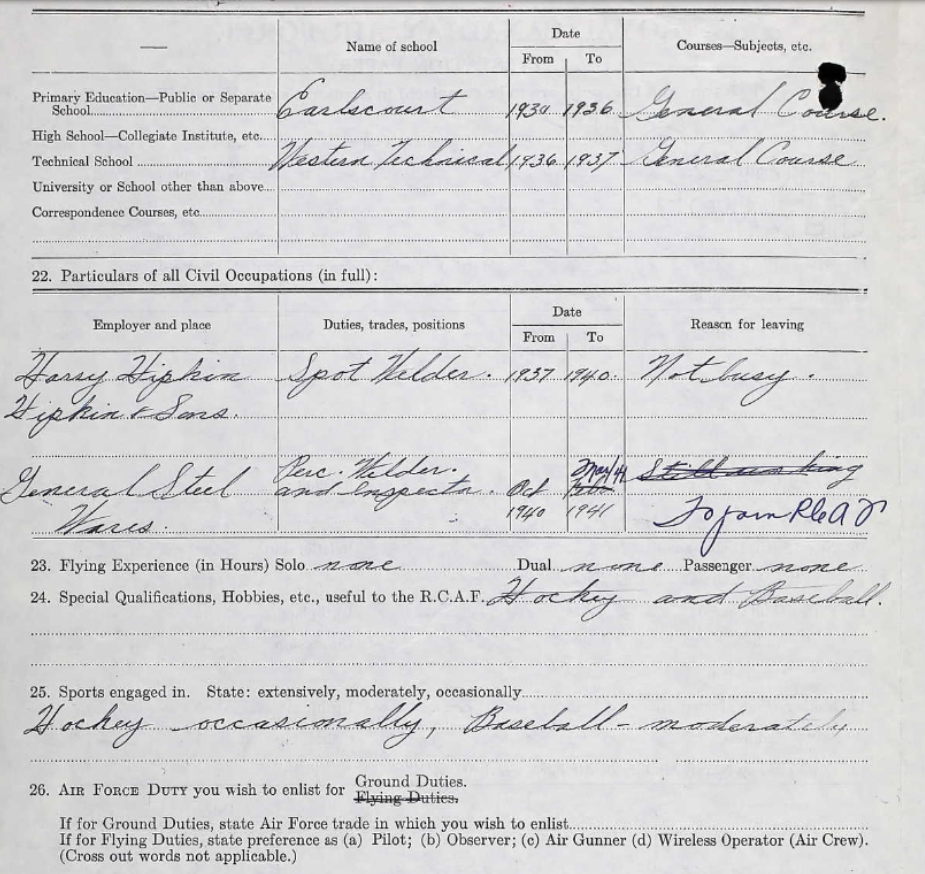 Name of school Date Courses—Subjects, etc.
From To
Primary Education—Public or Separate
School Earlscourt 1930 1936 General Course.
High School—Collegiate Institute, etc.
Technical School Western Technical 1936 1937 General Course
University or School other than above
Correspondence Courses, etc.
22. Particulars of all Civil Occupations (in full):
Employer and place Duties, trades, positions Date Reason for leaving
From To
Harry Hipkin Spot Welder. 1937 1940. Not busy.
Hipkin & Sons.
General Steel Perc. Welder. Mar/41 Still working
Wares. and Inspector. Oct 1940 1941 To join RCAF
23. Flying Experience (in Hours) Solo none Dual none Passenger none
24. Special Qualifications, Hobbies, etc., useful to the R.C.A.F. Hockey and Baseball.
25. Sports engaged in. State: extensively, moderately, occasionally
Hockey occasionally, Baseball - moderately
26. AIR FORCE DUTY you wish to enlist for Ground Duties.
Flying Duties.
If for Ground Duties, state Air Force trade in which you wish to enlist
If for Flying Duties, state preference as (a) Pilot; (b) Observer; (c) Air Gunner (d) Wireless Operator (Air Crew).
(Cross out words not applicable.)